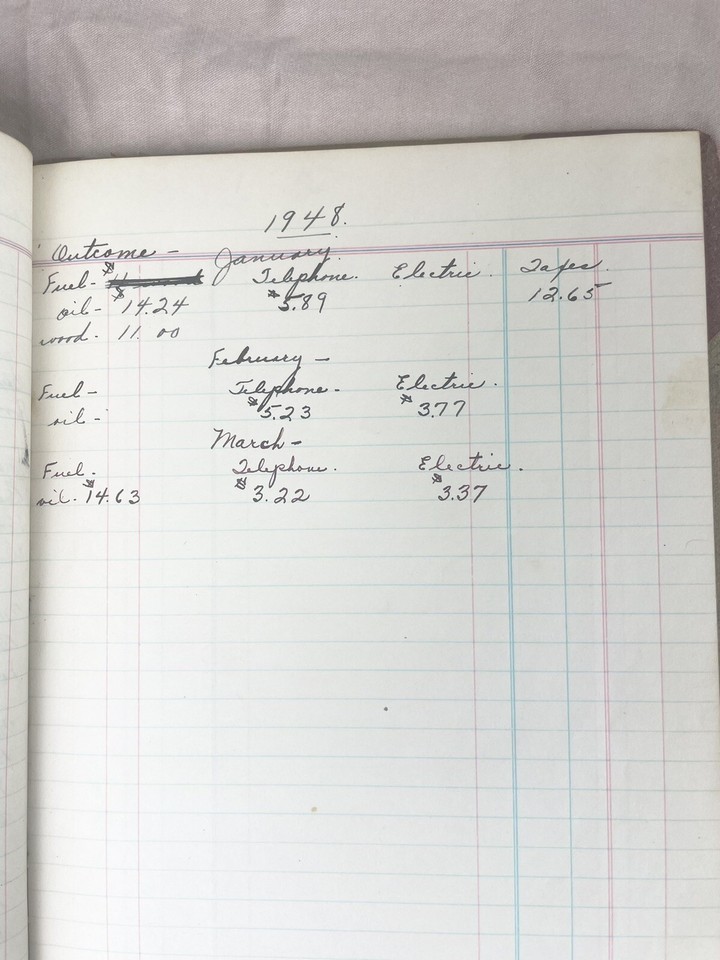 1948.
Outcome - January.
Fuel - $ Telephone. Electric. Taxes.
oil - $14.24 $5.89 12.65
wood. 11.00
February -
Fuel - Telephone - Electric.
oil - $5.23 $3.77
March -
Fuel. Telephone. Electric.
oil. $14.63 $3.22 $3.37